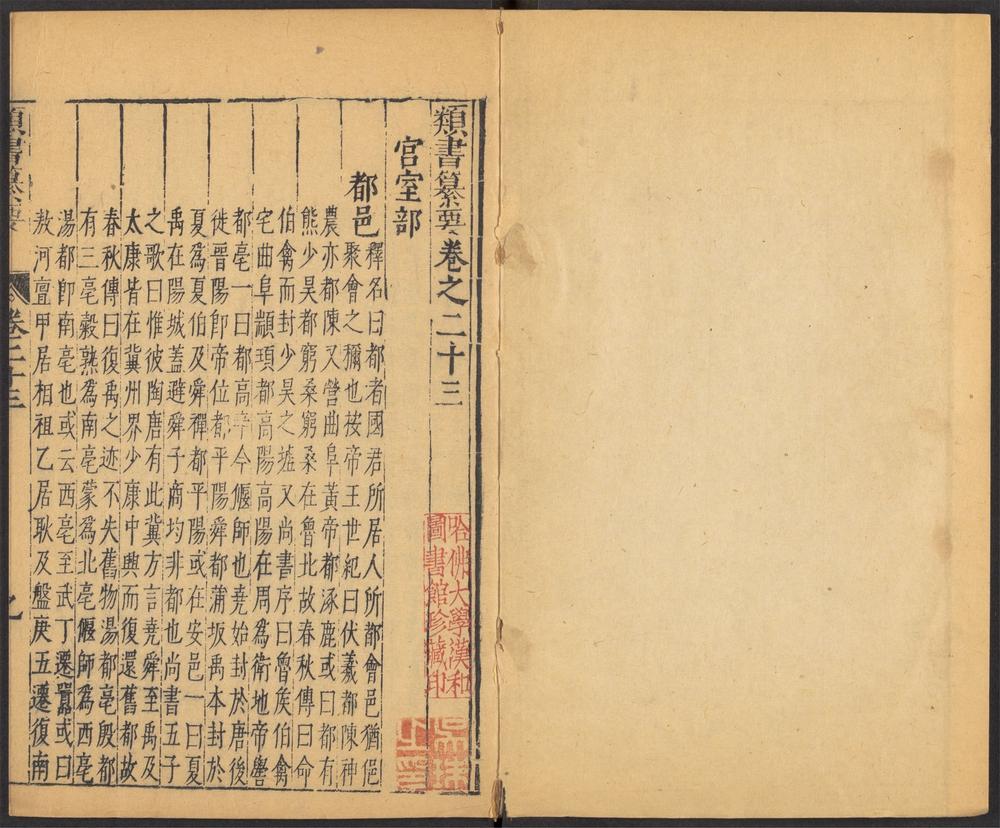 類書纂要卷之二十三
宮室部
都邑
釋名曰都者國君所居人所都會邑猶俋
聚會之稱也按帝王世紀曰伏羲都陳神
農亦都陳又營曲阜黃帝都涿鹿或曰都有
熊少昊都窮桑窮桑在魯北故春秋傳曰命
伯禽而封少昊之墟又尚書序曰魯侯伯禽
宅曲阜顓頊都高陽高陽在周爲衛地帝嚳
都亳一曰都高辛今偃師也堯始封於唐後
徙晉陽即帝位都平陽舜都蒲坂禹本封於
夏爲夏伯及舜禪都平陽或在安邑一曰夏
禹在陽城蓋避舜子商均非都也尚書五子
之歌曰惟彼陶唐有此冀方言堯舜至禹及
太康皆在冀州界少康中興而復還舊都故
春秋傳曰復禹之迹不失舊物湯都亳殷都
有三亳榖熟爲南亳蒙爲北亳偃師爲西亳
湯都即南亳也或云西亳至武丁遷囂或曰
敖河亶甲居相祖乙居耿及盤庚五遷復南
類書纂要
卷二十三
哈佛大學漢和
圖書館珍藏印